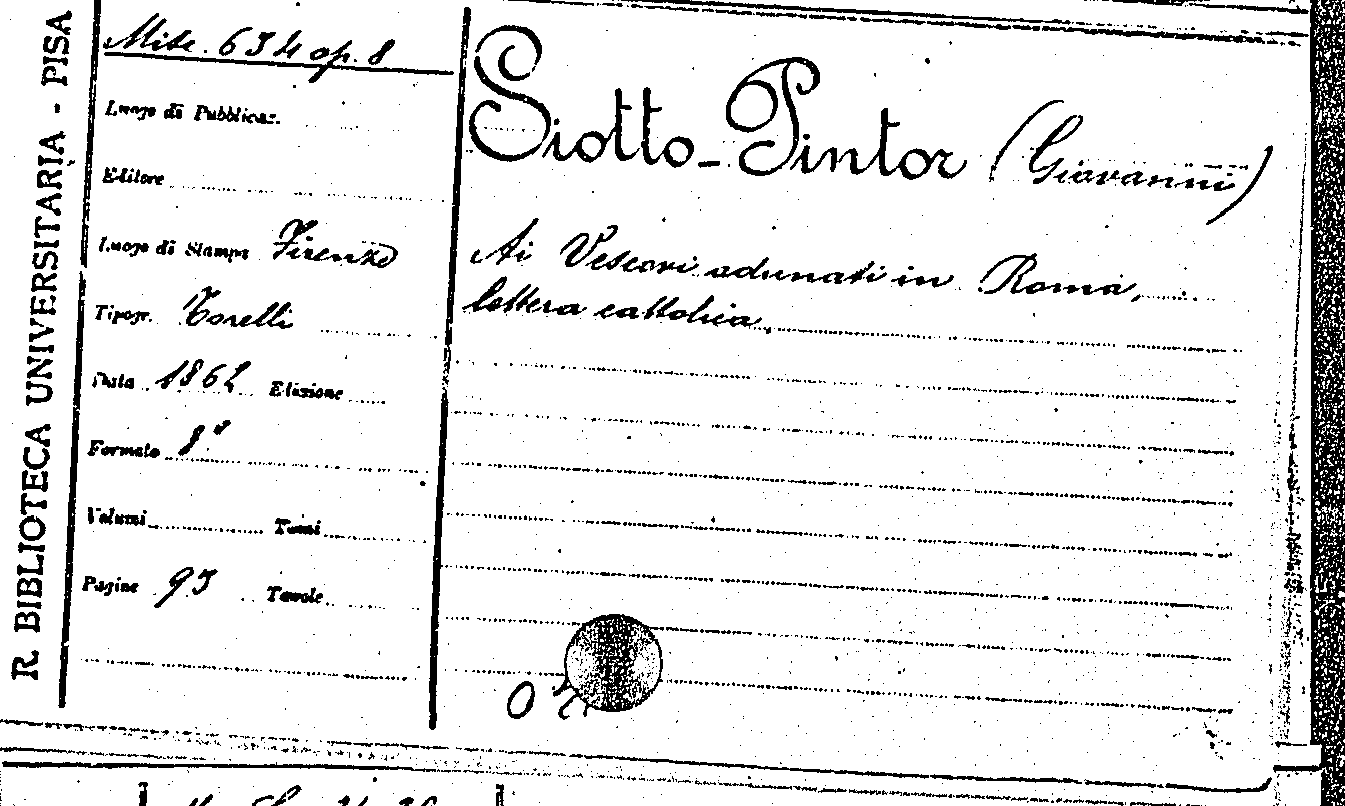 R. BIBLIOTECA UNIVERSITARIA - PISA
Misc. 634 op. 8
Luogo di Pubblicaz.
Editore
Luogo di Stampa Firenze
Tipogr. Torelli
Data 1862 Edizione
Formato 8°
Volumi Tomi
Pagine 95 Tavole
Siotto-Pintor (Giovanni)
Ai Vescovi adunati in Roma,
lettera cattolica.